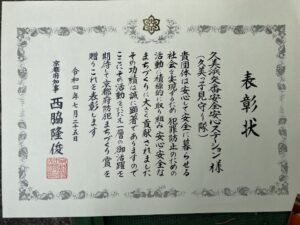 表彰状
久美浜交番安全安心ステーション様
（久美っ子見守り隊）
貴団体は安心して安全に暮らせる
社会を実現するため犯罪防止のための
活動に積極的に取り組み安心安全な
まちづくりに大きく貢献されました
その功績は誠に顕著でありますので
ここにその活動をたたえ一層の御活躍を
期待して京都府防犯まちづくり賞を
贈りこれを表彰します
令和四年七月二十五日
京都府知事 西脇隆俊